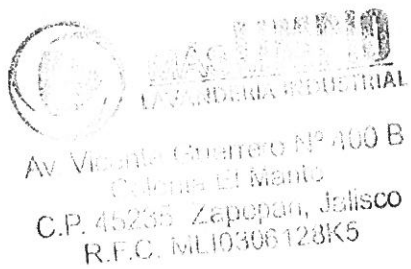 MAS LIMPIO
LAVANDERIA INDUSTRIAL
Av. Vicente Guerrero Nº 400 B
Colonia El Mante
C.P. 45235 Zapopan, Jalisco
R.F.C. MLI0306128K5